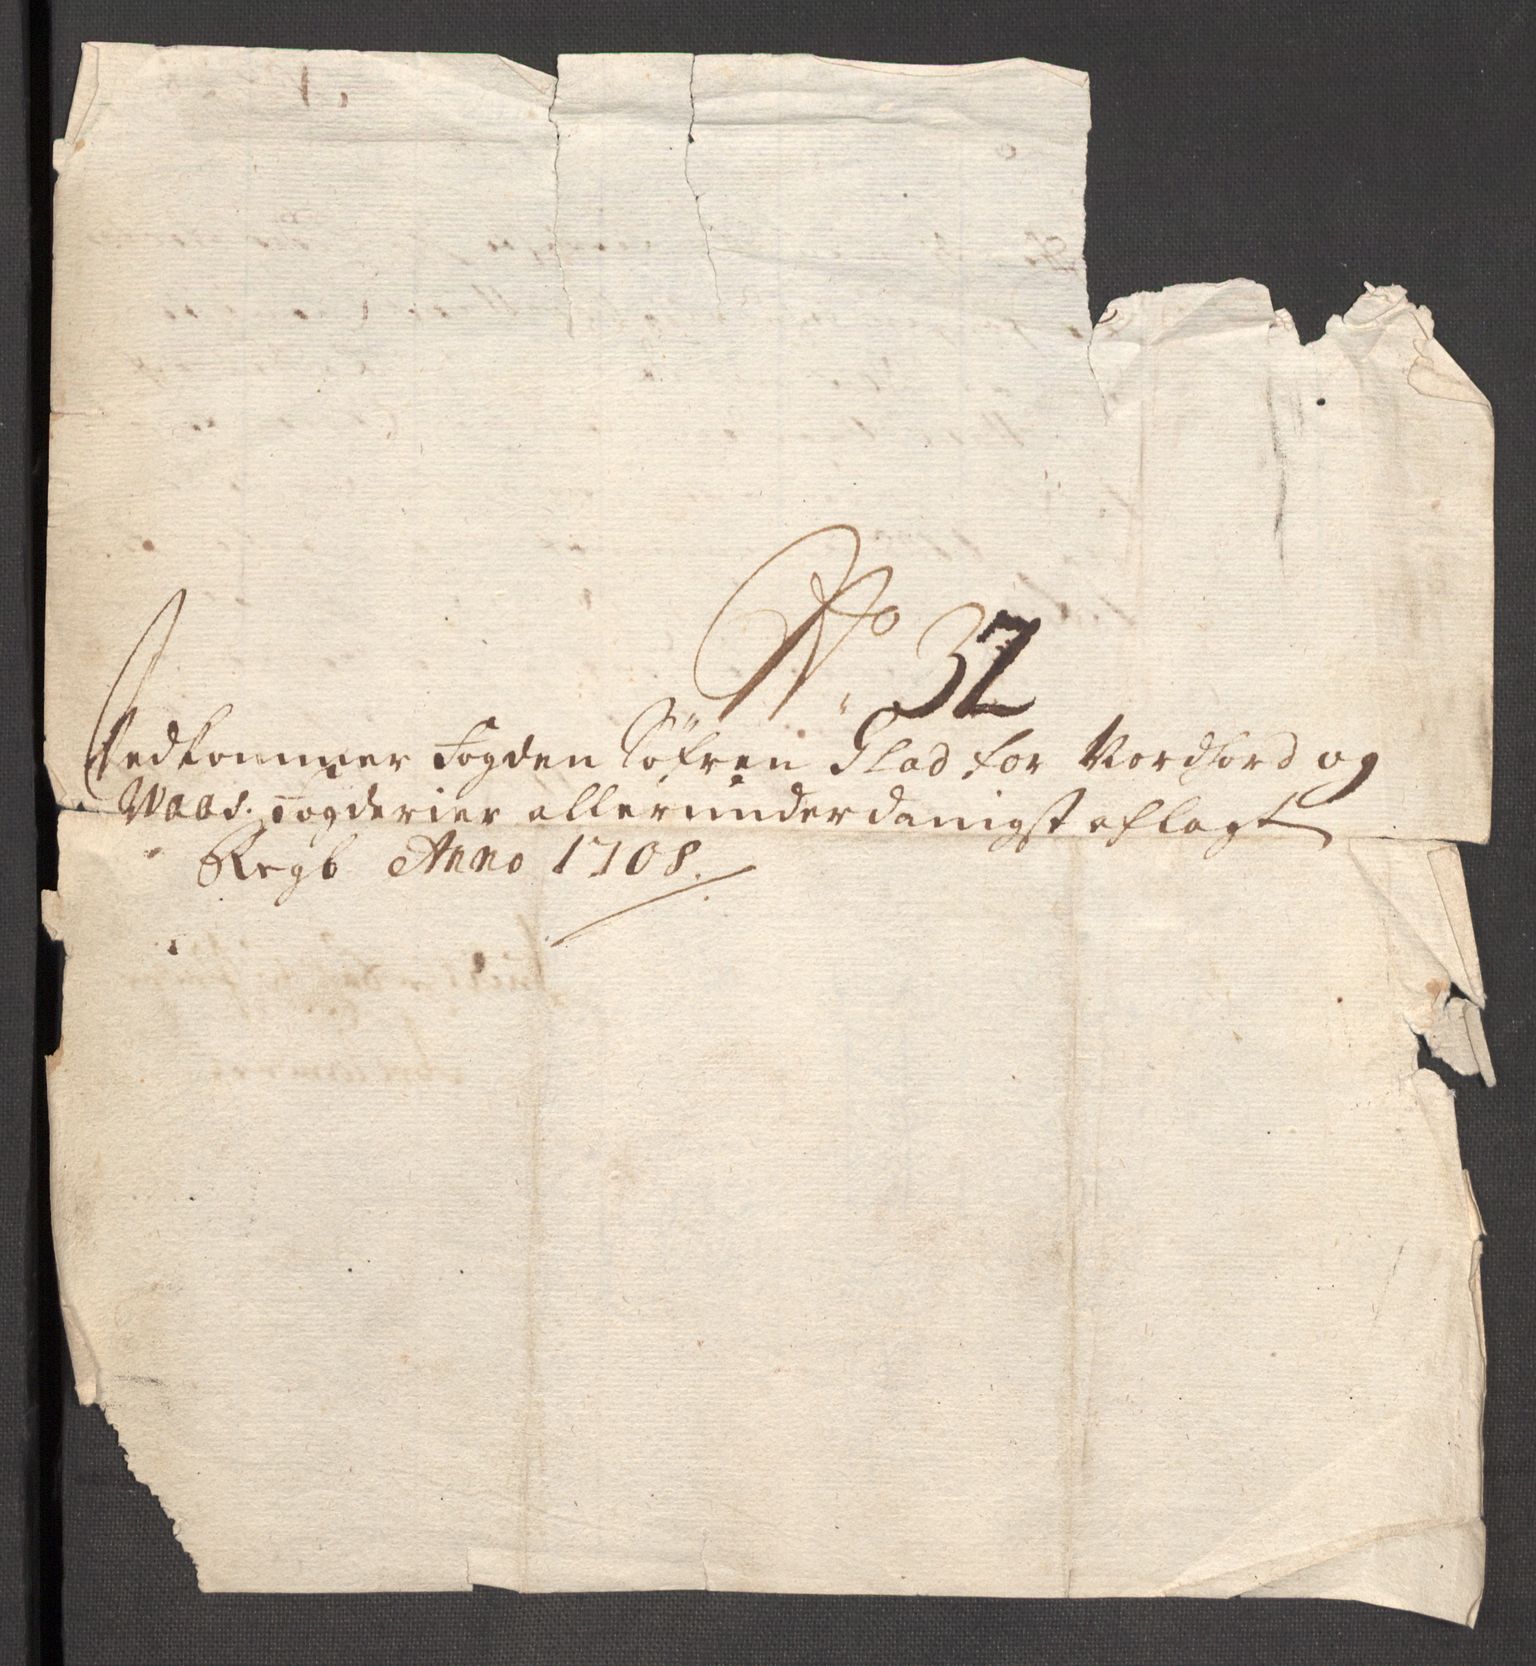 No. 32
Vedkommer Fogden Söfren Slad for Nordford og
Waas. Fogderier allerunderdanigst aflagt
Regb Anno 1708.